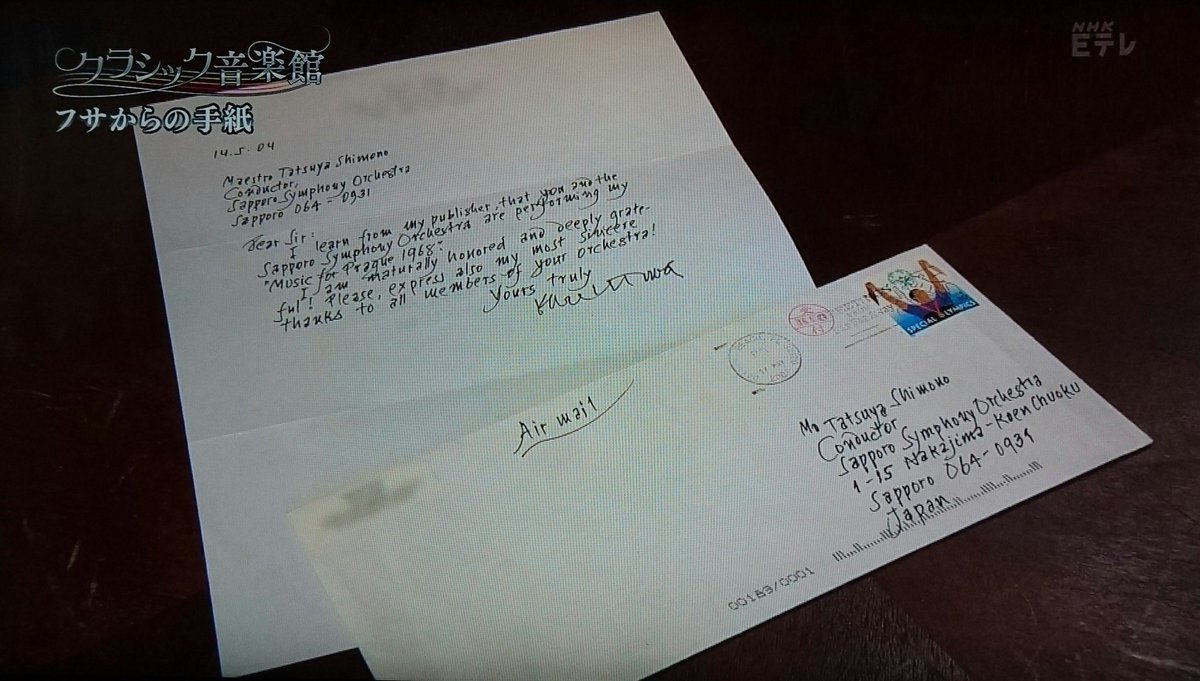 クラシック音楽館
フサからの手紙
NHK
Eテレ
14.5.04
Maestro Tatsuya Shimono
Conductor,
Sapporo Symphony Orchestra
Sapporo 064-0931
Dear Sir:
I learn from my publisher that you and the
Sapporo Symphony Orchestra are performing my
"Music for Prague 1968".
I am naturally honored and deeply grate-
ful! Please, express also my most sincere
thanks to all members of your orchestra!
Yours truly
Air mail
SPECIAL OLYMPICS
Mo Tatsuya Shimono
Conductor
Sapporo Symphony Orchestra
1-15 Nakajima-Koen Chuoku
Sapporo 064-0931
Japan
00183/0001